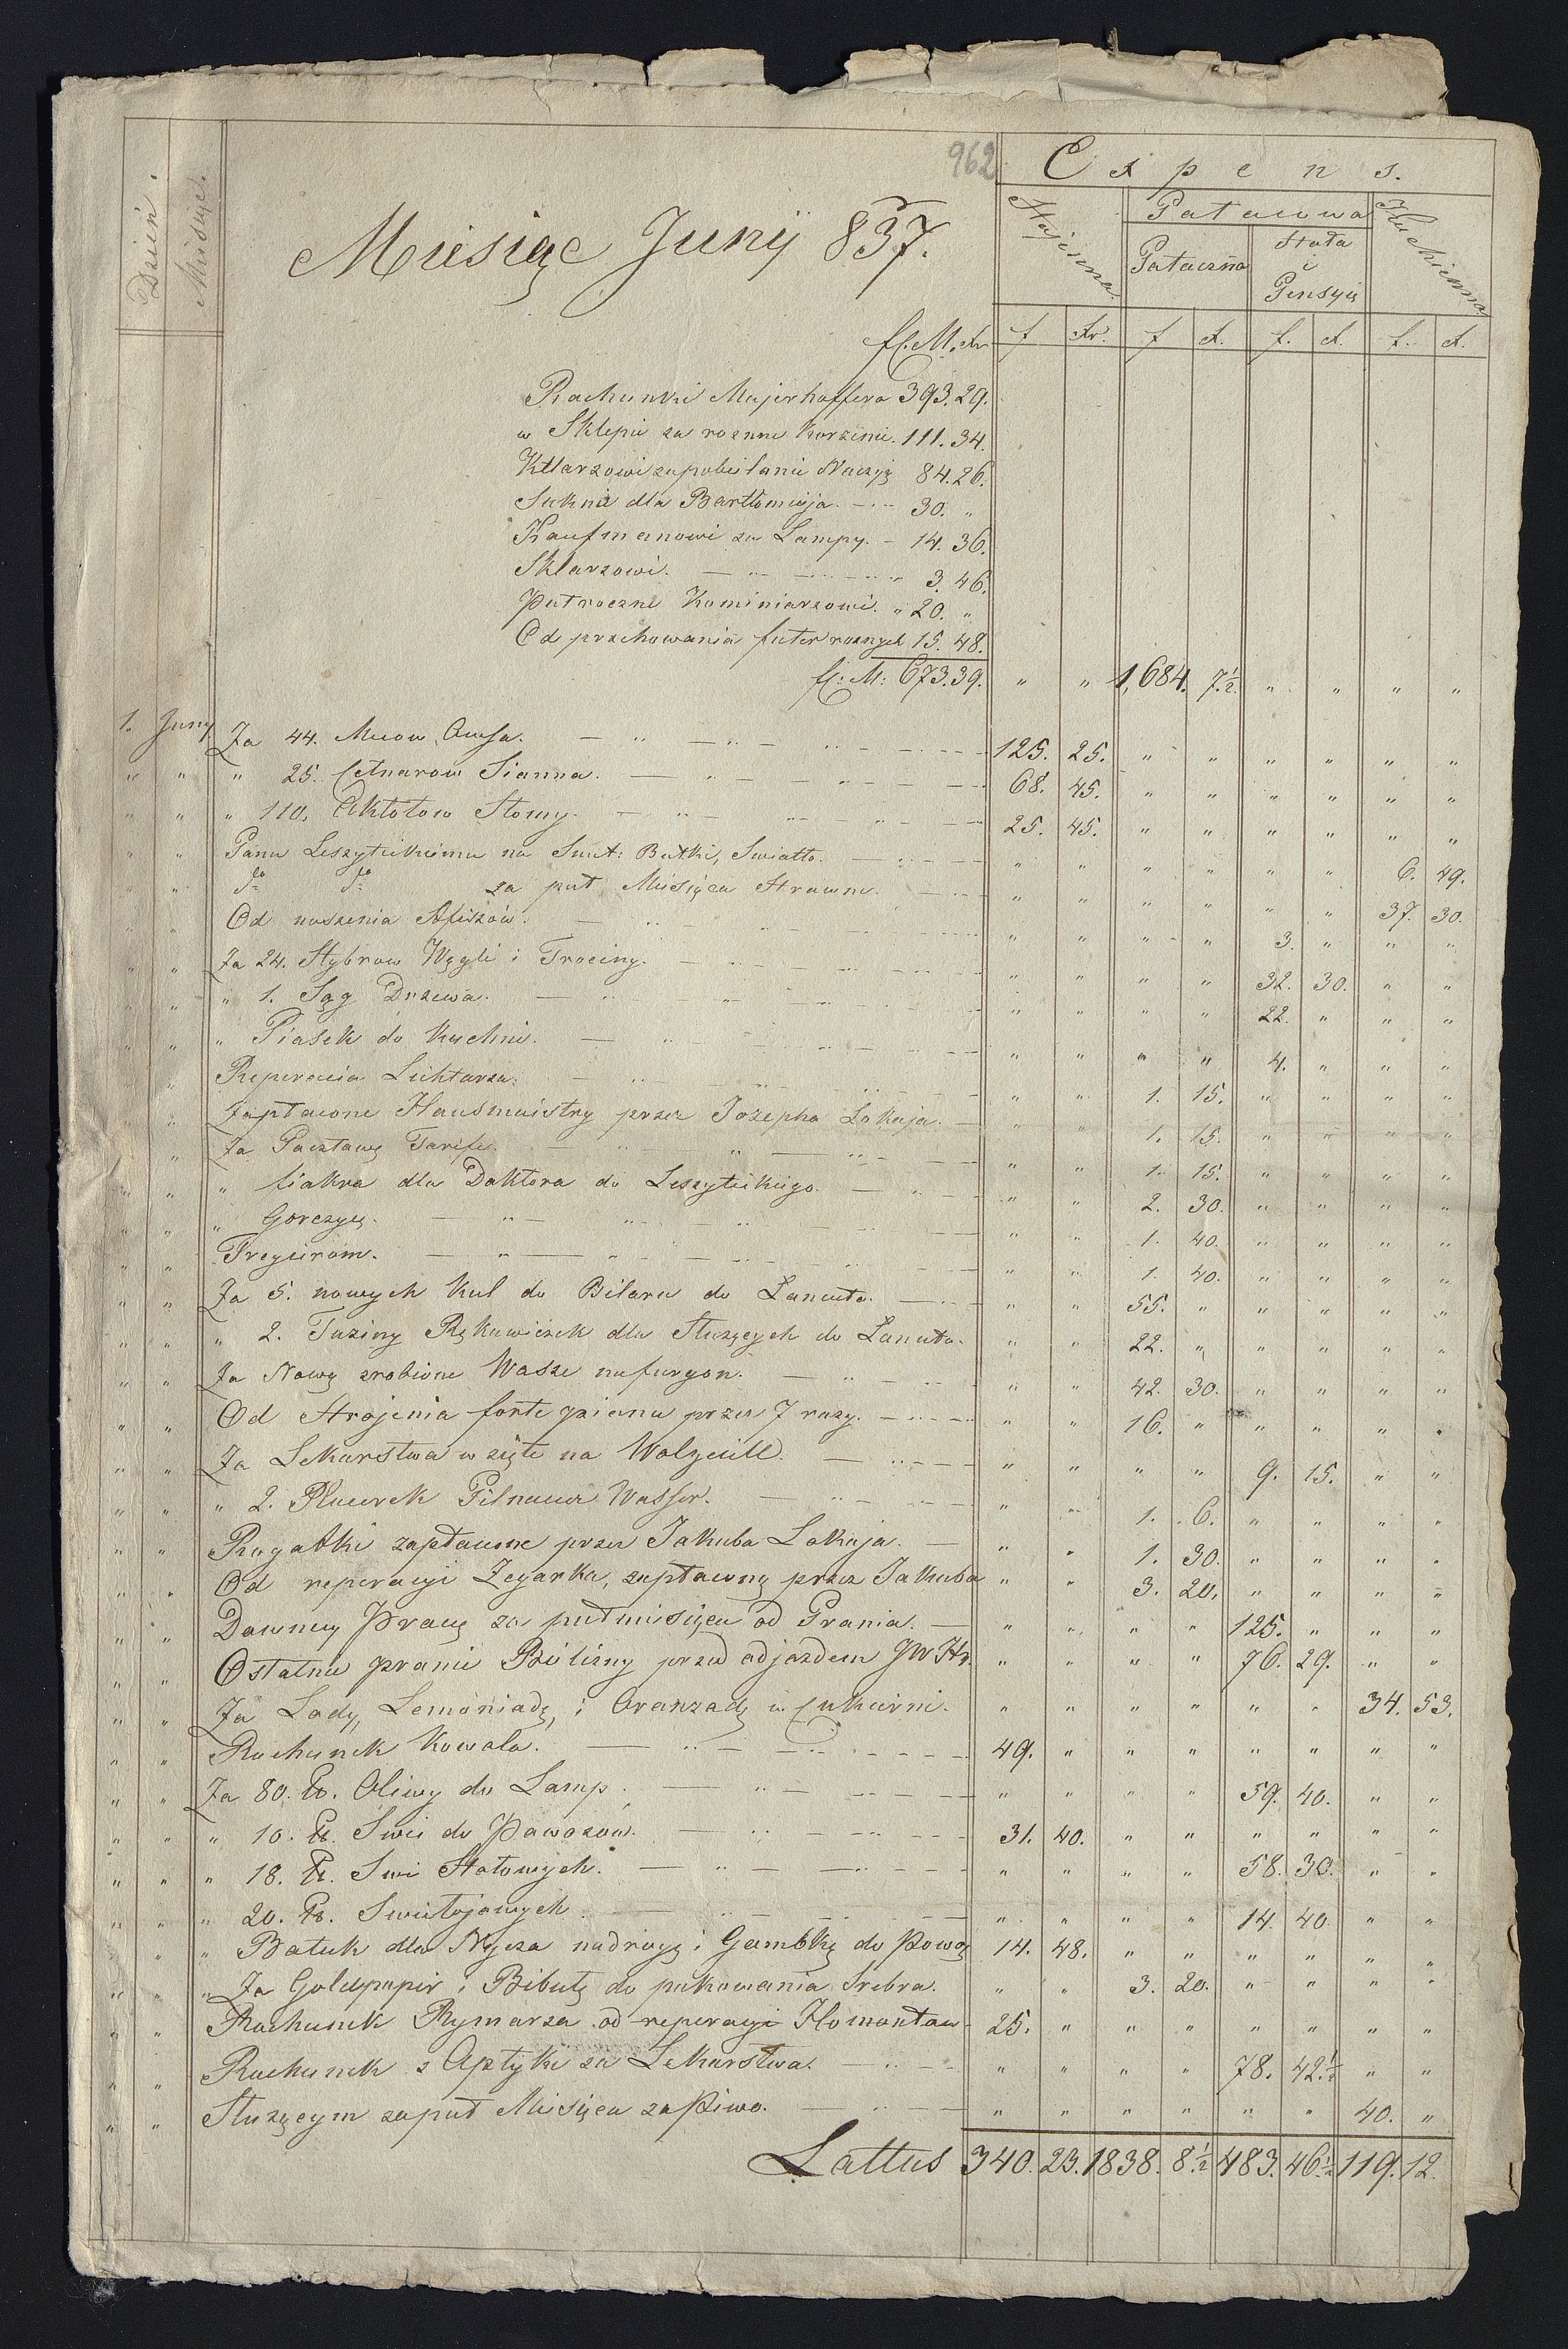 962
Expens.
Dzień.
Miesiąc.
Miesiąc Junÿ 837.
Stajenna.
Pałacowa
Kuchenna
Pałaczna
Stała i Pensyię
fl. M. Xr
f Xr. f X. f. X. f. X.
Rachunki Majerhoffera 393. 29.
w Sklepie za rozne Korzenie. 111. 34.
Ktlarzowi zapobielanie Naczyę 84. 26.
Suknia dla Bartłomieja. - 30. "
Kaufmanowi za Lampy. - 14. 36.
Sklarzowi. - 3. 46.
Pułroczne Kominiarzowi. " 20. "
Od przchowania futer roznych 15. 48.
fl: M: 673. 39. " " 1,684. 7.½ " " " "
1. Juny Za 44. Mecow Owsa. 125. 25. " " " " " "
" " " 25. Cetnarow Sianna. 68. 45. " " " " " "
" " " 110. Okłotow Słomy. 25. 45. " " " " " "
" " Panu Leszytickiemu na Smet: Bułki, Swiatło. " " " " " " 6. 49.
" " do do za puł Miesięca Strawne. " " " " " " 37. 30.
" " Od noszenia Afiszów. " " " " 3. " " "
" " Za 24. Stybrow Węgli i Trociny. " " " " 32. 30. " "
" " " 1. Sąg Drzewa. " " " " 22. " " "
" " " Piasek do Kuchni. " " " " 4. " " "
" Reperacia Lichtarza. " " 1. 15. " " " "
" Zapłacone Hausmaistry przez Jozepha Lokaja. " " 1. 15. " " " "
" Za Pocztawę Tarife. " " 1. 15. " " " "
" " " fiakra dla Doktora do Leszytickiego. " " 2. 30. " " " "
" " " Gorczyę. " " 1. 40. " " " "
" " Freyeirom. " " 1. 40. " " " "
" " Za 5. nowych kul do Bilaru do Łancuta. " " 55. " " " " "
" " " 2. Tuziny Rękawiczek dla Służęcych do Łancuta. " " 22. " " " " "
" " Za Nowę zrobione Wasze nafurgon. " " 42. 30. " " " "
" " Od Strojenia forte pzianu przez 7 razy. " " 16. " " " " "
" " Za Lekarstwa wzięte na Wolzeill. " " " " 9. 15. " "
" " " 2. Plucerek Pilnauer Wasser. " " 1. 6. " " " "
" " Rogatki zapłacone przez Jakuba Lokaja. " " 1. 30. " " " "
" " Od reperacyi Zegarka, zapłaconę przez Jakuba " " 3. 20. " " " "
" " Dawney Pracę za puł miesięca od Prania. " " " " 125. " " "
" " Ostatnie pranie Bielizny przed odjazdem JW Hr. " " " " 76. 29. " "
" " Za Lody, Lemoniadę, i Oranzadę w Cukierni. " " " " " " 34. 53.
" " Rachunek Kowala. 49. " " " " " " "
" " Za 80. ℔. Oliwy do Lamp. " " " " 59. 40. " "
" " " 10. ℔. Swic do Powozow. 31. 40. " " " " " "
" " " 18. ℔. Swi Stołowych. " " " " 58. 30. " "
" " " 20. ℔. Swic Łojowych. " " " " 14. 40. " "
" " " Batuk dla Nejcza nadrogę i Gombkę do Powoz 14. 48. " " " " " "
" " " Za Goldpapir i Bibułę do pakowania Srebra. " " 3. 20. " " " "
" " Rachunek Rymarza od reperacyi Homontaw 25. " " " " " " "
" " Rachunek z Aptyki za Lekarstwa. " " " " 78. 42.½ " "
" " Służęcym zapuł Miesięca zaPiwo. " " " " " " 40. "
Lattus 340. 23. 1838. 8½ 483. 46½ 119. 12.